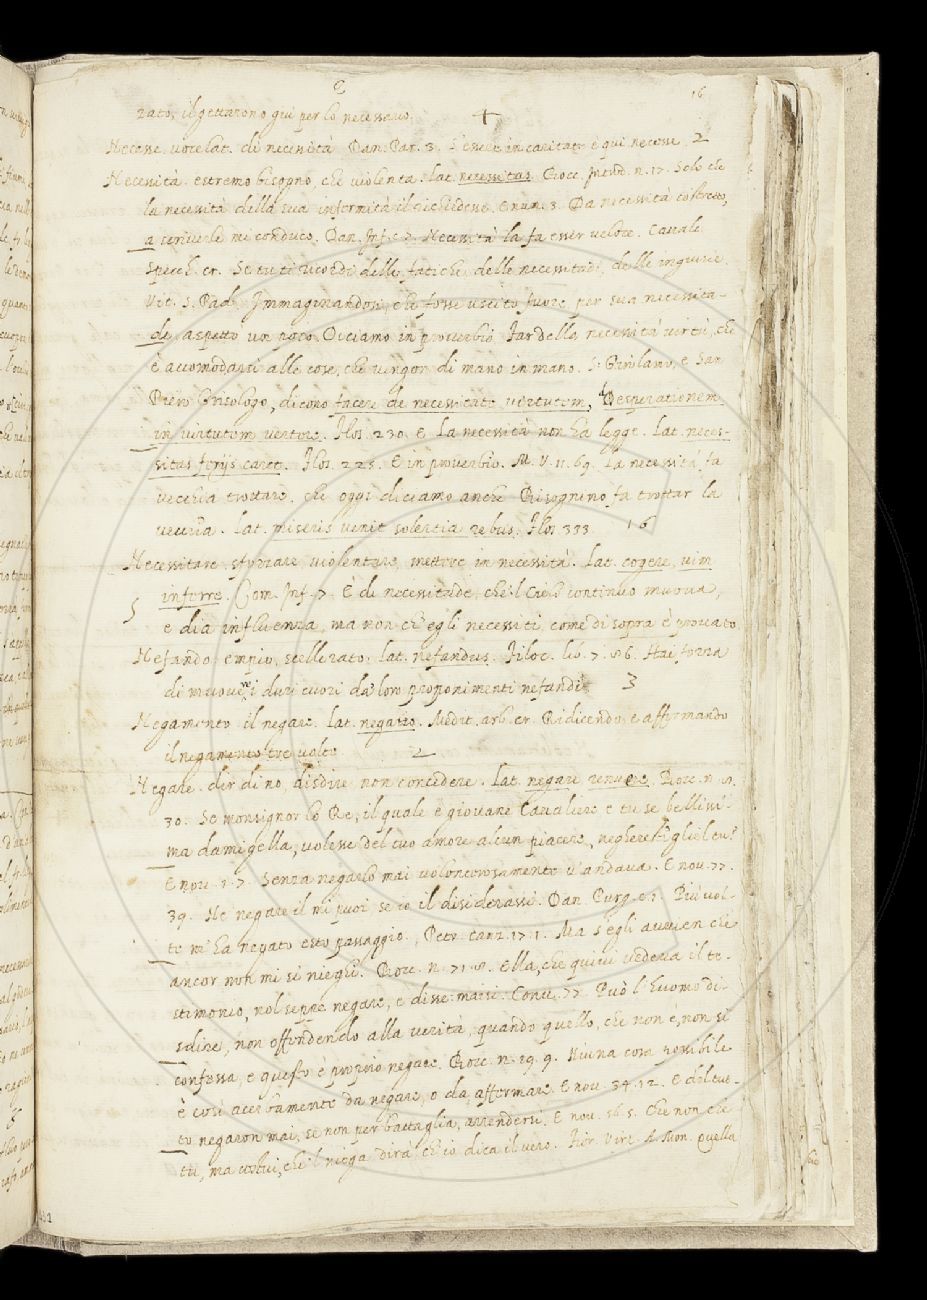 E
16
zato, il gettarono giù per lo necessario. 4
Necesse. voce lat. di necessità Dan. Par. 3. S'essere in caritate è qui necesse. 2
Necessità. estremo bisogno, che violenta. lat. necessitas. Bocc. Introd. n. 17. Solo che
la necessità della sua infermità il richiedesse. E num. 3. Da necessità costretto,
a scriverle mi conduco. Dan. Inf. c. 7. Necessità la fa esser veloce. Cavalc.
Specch. cr. Se tu ti ricordi delle fatiche, delle necessitadi, delle ingiurie
Vit. S. Pad. Immaginandosi, che fosse uscito fuore per sua necessita-
de, aspettò un poco. Diciamo in proverbio Far della necessità virtù, che
è accomodarsi alle cose, che vengon di mano in mano. S. Girolamo, e San
Piero Grisologo, dicono facere de necessitate virtutem, Desperationem
in virtutem vertere. Flos 230. E La necessità non ha legge. Lat. neces-
sitas ferijs caret. Flos. 225. E in proverbio. M. V. 11. 69. La necessità fa
vecchia trottare, che oggi diciamo anche Bisognino fa trottar la
vecchia. Lat. miseris venit solertia rebus. Flos 333. 16
Necessitare. sforzare, violentare, mettere in necessità. Lat. cogere, vim
inferre. Com. Inf. 7. E di necessitade, che 'l Cielo continuo muova,
5
e dia influenza, ma non ch' egli necessiti, come di sopra è provato
Nefando. empio, scellerato. lat. nefandus. Filoc. lib. 7. 86. Hai forza
di muovere i duri cuori da' loro proponimenti nefandi 3
Negamento. il negare. lat. negatio. Medit. arb. cr. Ridicendo, e affermando
il negamento tre volte 2
Negare. dir di no, disdire, non concedere. Lat. negare renuere. Bocc. n. 8.
30. Se monsignor lo Re, il quale è giovane Cavaliere e tu se' bellissi-
ma damigella, volesse del tuo amore alcun piacere, neghereftigliel tu?
E nov. 1. 7. Senza negarlo mai volonterosamente v'andava. E nov. 77.
39. Ne negare il mi puoi se io il disiderassi. Dan. Purg. c. 2. Più vol-
te m'ha negato esto passaggio. Petr. canz. 17. 1. Ma s'egli avvien che
ancor non mi si nieghi. Bocc. n. 71. 8. Ella, che quivi vedeva il te-
stimonio, nol seppe negare, e disse: maisì. Conv. 77. Può l'huomo di-
sdire, non offendendo alla verità, quando quello, che non è, non si
confessa, e questo è proprio negare. Bocc. n. 19. 9. Niuna cosa
è così acerbamente da negare, o da affermare. E nov. 34. 12. E del tut-
to negaron mai, se non per battaglia, arrendersi. E nov. 16. 5. Che non che
tu, ma costui, che 'l niega dirà ch'io dica il vero. Fior. Virt. A. Mon. Quella